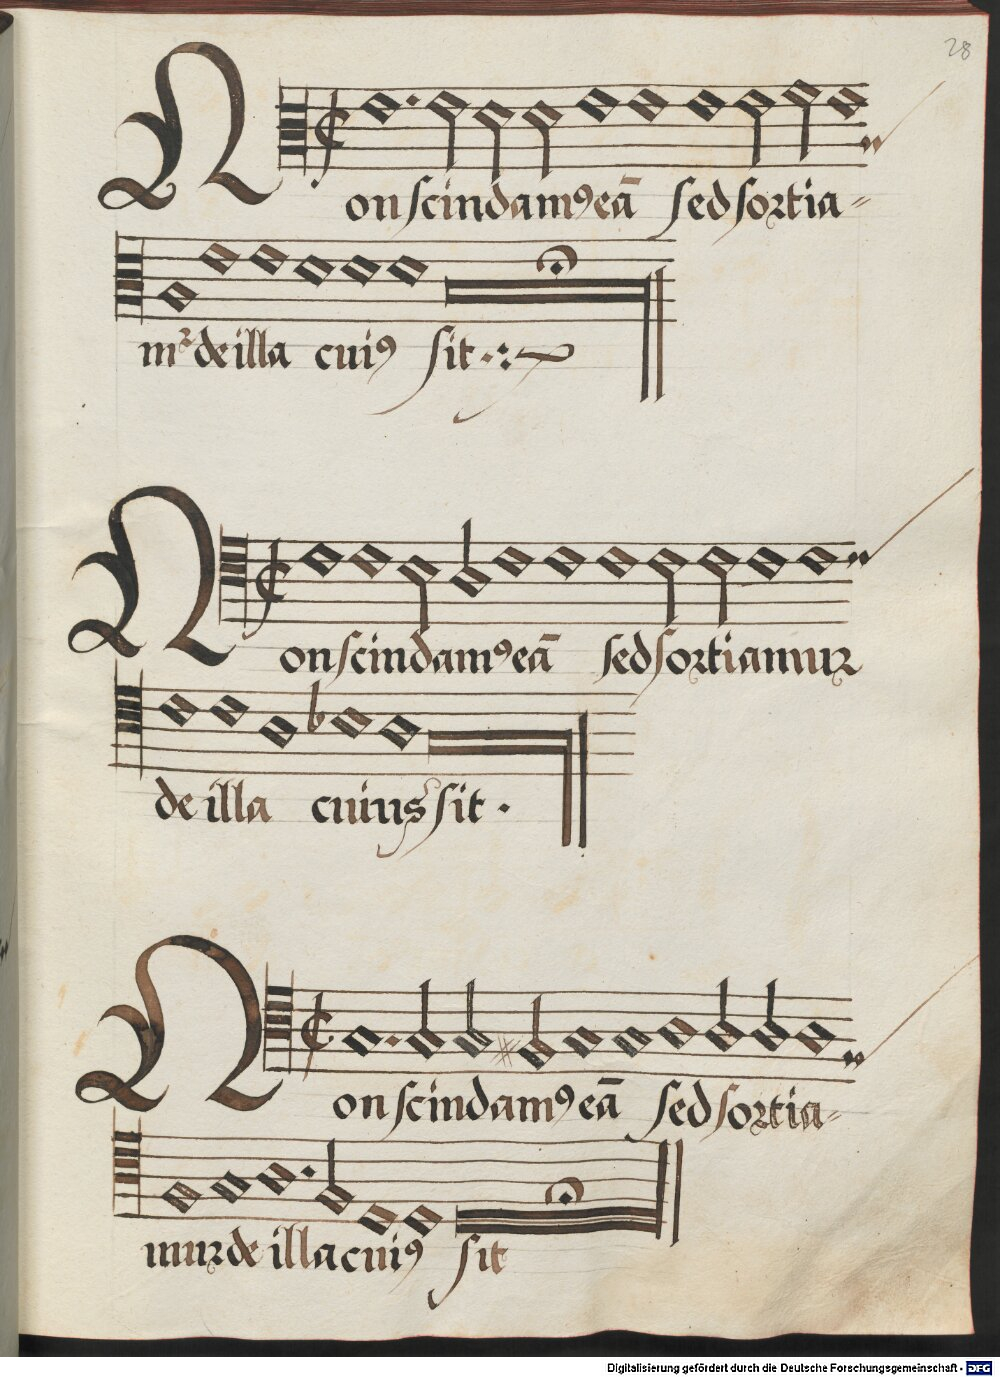 28
Non scindam⁹ eã sed sortia-
mꝛ de illa cui⁹ sit
Non scindam⁹ eã sed sortiamur
de illa cuius sit.
Non scindam⁹ eã sed sortia-
mur de illa cui⁹ sit
Digitalisierung gefördert durch die Deutsche Forschungsgemeinschaft - DFG